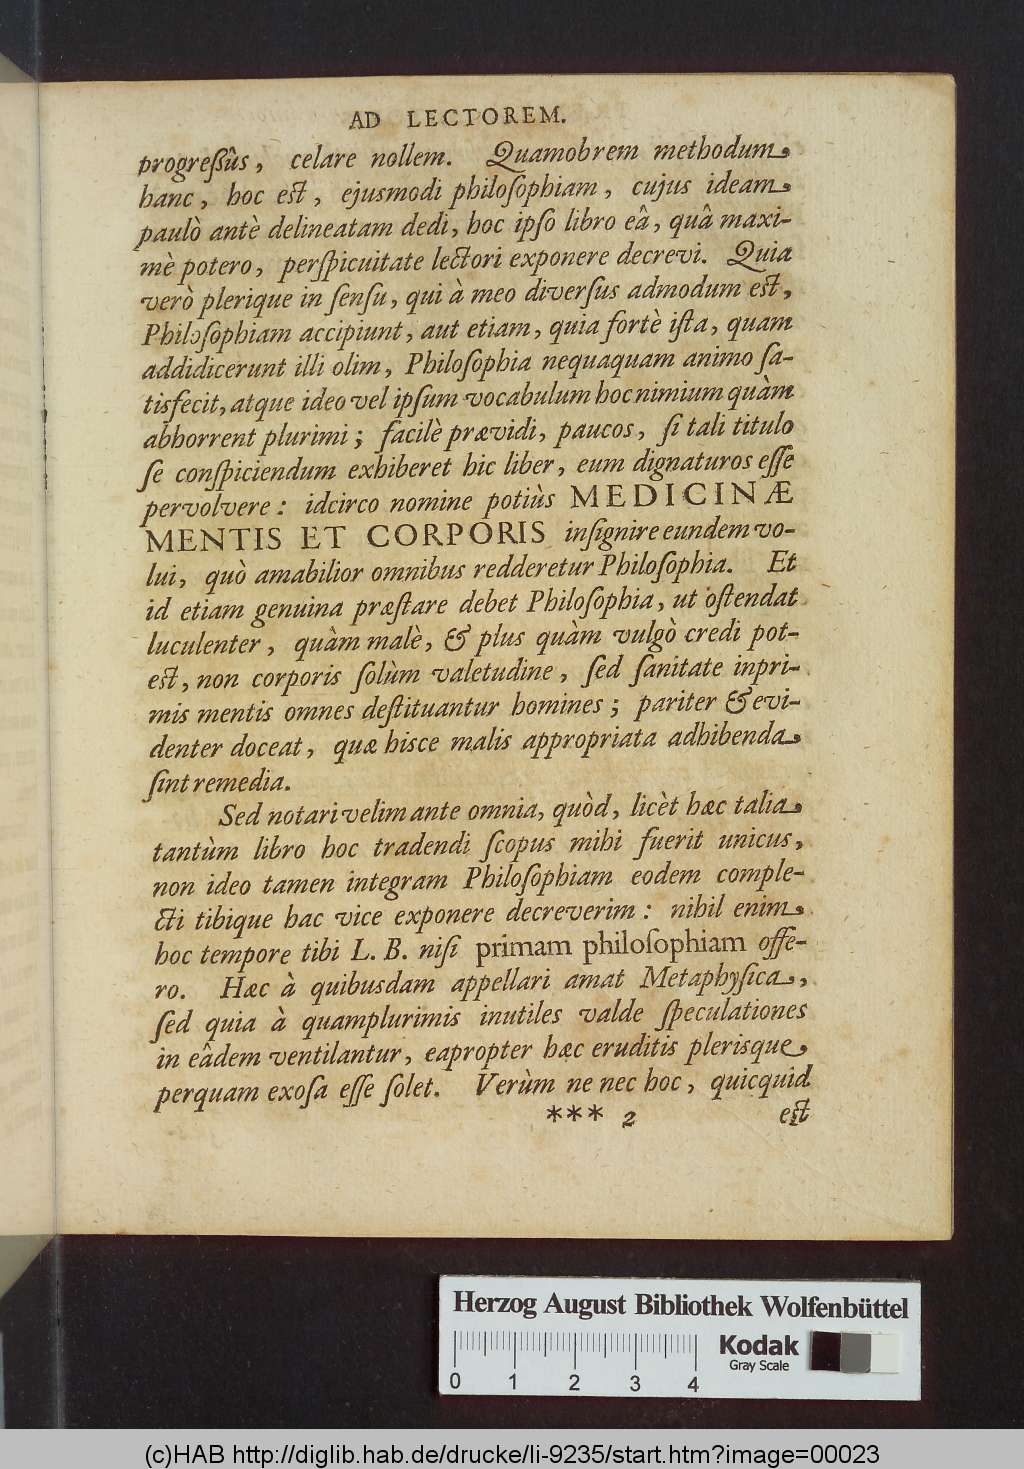 AD LECTOREM.
progreſſûs, celare nollem. Quamobrem methodum
hanc, hoc eſt, ejusmodi philoſophiam, cujus ideam
paulò antè delineatam dedi, hoc ipſo libro eâ, quâ maxi-
mè potero, perſpicuitate lectori exponere decrevi. Quia
verò plerique in ſenſu, qui à meo diverſus admodum eſt,
Philoſophiam accipiunt, aut etiam, quia fortè iſta, quam
addidicerunt illi olim, Philoſophia nequaquam animo ſa-
tisfecit, atque ideo vel ipſum vocabulum hoc nimium quàm
abhorrent plurimi; facilè prævidi, paucos, ſi tali titulo
ſe conſpiciendum exhiberet hic liber, eum dignaturos eſſe
pervolvere: idcirco nomine potiùs MEDICINÆ
MENTIS ET CORPORIS inſignire eundem vo-
lui, quò amabilior omnibus redderetur Philoſophia. Et
id etiam genuina præſtare debet Philoſophia, ut oſtendat
luculenter, quàm malè, & plus quàm vulgò credi pot-
eſt, non corporis ſolùm valetudine, ſed ſanitate inpri-
mis mentis omnes deſtituantur homines; pariter & evi-
denter doceat, quæ hisce malis appropriata adhibenda
ſint remedia.
Sed notari velim ante omnia, quòd, licèt hæc talia
tantùm libro hoc tradendi ſcopus mihi fuerit unicus,
non ideo tamen integram Philoſophiam eodem comple-
cti tibique hac vice exponere decreverim: nihil enim
hoc tempore tibi L. B. niſi primam philoſophiam offe-
ro. Hæc à quibusdam appellari amat Metaphyſica,
ſed quia à quamplurimis inutiles valde ſpeculationes
in eâdem ventilantur, eapropter hæc eruditis plerisque
perquam exoſa eſſe ſolet. Verùm ne nec hoc, quicquid
*** 2 eſt
Herzog August Bibliothek Wolfenbüttel
Kodak
Gray Scale
0 1 2 3 4
(c)HAB http://diglib.hab.de/drucke/li-9235/start.htm?image=00023